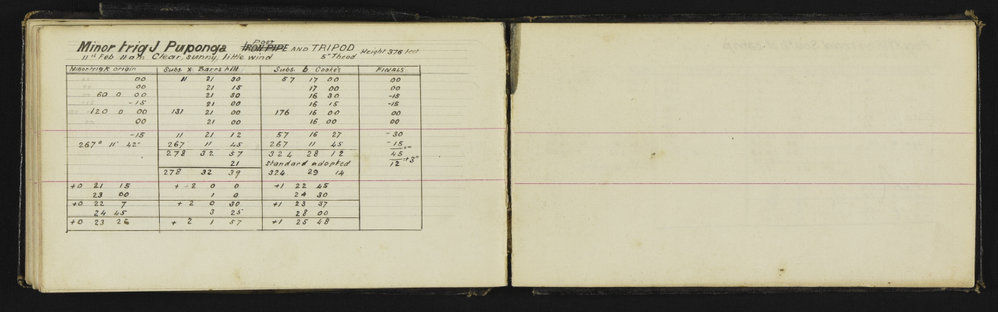 Minor trig J Puponga Post IRON PIPE AND TRIPOD Height 376 feet
11th Feb 11 am Clear, sunny, little wind 5" Theod
Minor trig K origin Subs X Barrs hill Subs D Cooke's FINALS
00 11 21 30 57 17 00 00
00 21 15 17 00 00
60 0 00 21 30 16 30 -15
-15 21 00 16 15 -15
120 0 00 131 21 00 176 16 00 00
00 21 00 16 00 00
-15 11 21 12 57 16 27 -30
267° 11' 42" 267 11 45 267 11 45 -15
278 32 57 324 28 12 45
21 standard adopted 12 +3"
278 32 39 324 29 14
+0 21 15 + 2 0 0 +1 22 45
23 00 1 0 24 30
+0 22 7 + 2 0 30 +1 23 37
24 45 3 25 28 00
+0 23 26 + 2 1 57 +1 25 48